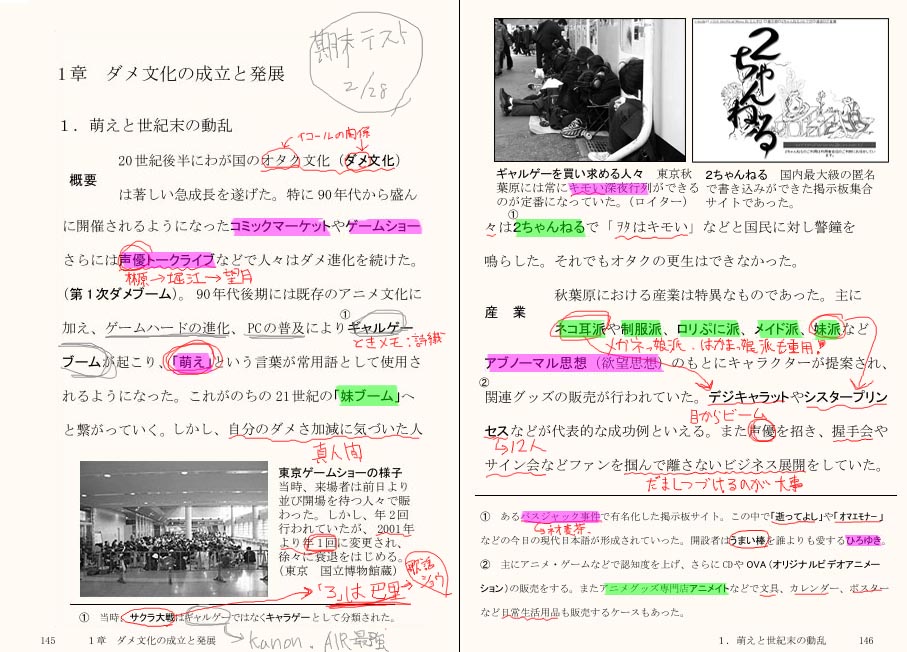 期末テスト
2/28
1章　ダメ文化の成立と発展
1．萌えと世紀末の動乱
イコールの関係
概要
20世紀後半にわが国のオタク文化（ダメ文化）
は著しい急成長を遂げた。特に90年代から盛ん
に開催されるようになったコミックマーケットやゲームショー
さらには声優トークライブなどで人々はダメ進化を続けた。
林原→堀江→望月
(第1次ダメブーム)。90年代後期には既存のアニメ文化に
加え、ゲームハードの進化、PCの普及により①ギャルゲー
ときメモ:詩織
ブームが起こり、「萌え」という言葉が常用語として使用さ
れるようになった。これがのちの21世紀の「妹ブーム」へ
と繋がっていく。しかし、自分のダメさ加減に気づいた人
真人間
東京ゲームショーの様子
当時、来場者は前日より
並び開場を待つ人々で賑
わった。しかし、年2回
行われていたが、2001年
より年1回に変更され、
徐々に衰退をはじめる。
(東京　国立博物館蔵)
歌謡ショウ
「3」は巴里
①　当時、サクラ大戦はギャルゲーではなくキャラゲーとして分類された。
kanon、AIR最強
145　1章　ダメ文化の成立と発展
2ちゃんねる
ギャルゲーを買い求める人々　東京秋
葉原には常にキモい深夜行列ができる
のが定番になっていた。（ロイター）
2ちゃんねる　国内最大級の匿名
で書き込みができた掲示板集合
サイトであった。
々は①2ちゃんねるで「ｦﾀはキモい」などと国民に対し警鐘を
鳴らした。それでもオタクの更生はできなかった。
産業
秋葉原における産業は特異なものであった。主に
ネコ耳派や制服派、ロリぷに派、メイド派、妹派など
メガネっ娘派、はかまっ娘派も重用!!
アブノーマル思想（欲望思想）のもとにキャラクターが提案され、
②関連グッズの販売が行われていた。デジキャラットやシスタープリン
目からビーム
セスなどが代表的な成功例といえる。また声優を招き、握手会や
12人
サイン会などファンを掴んで離さないビジネス展開をしていた。
だましつづけるのが大事
①　あるバスジャック事件で有名化した掲示板サイト。この中で「逝ってよし」や「オマエモナー」
などの今日の現代日本語が形成されていった。開設者はうまい棒を誰よりも愛するひろゆき。
②　主にアニメ・ゲームなどで認知度を上げ、さらにCDやOVA（オリジナルビデオアニメー
ション）の販売をする。またアニメグッズ専門店アニメイトなどで文具、カレンダー、ポスター
など日常生活用品も販売するケースもあった。
1．萌えと世紀末の動乱　146